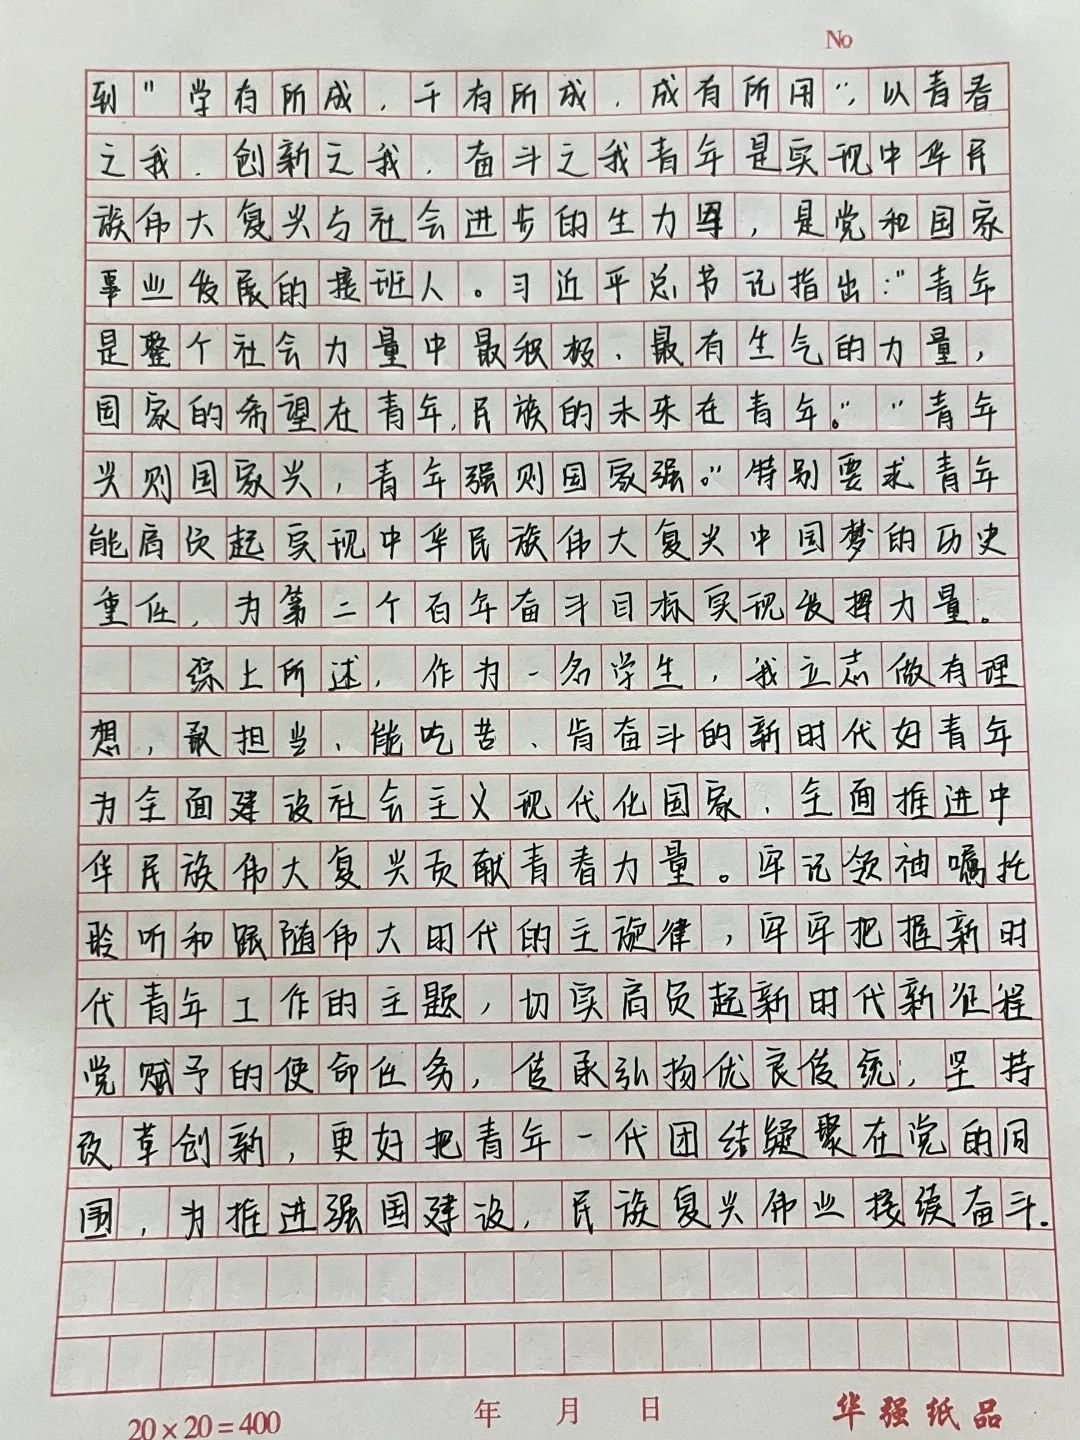 No
到"学有所成,干有所成,成有所用",以青春
之我、创新之我、奋斗之我青年是实现中华民
族伟大复兴与社会进步的生力军,是党和国家
事业发展的接班人。习近平总书记指出:"青年
是整个社会力量中最积极、最有生气的力量,
国家的希望在青年,民族的未来在青年。""青年
兴则国家兴,青年强则国家强。"特别要求青年
能肩负起实现中华民族伟大复兴中国梦的历史
重任,为第二个百年奋斗目标实现发挥力量。
综上所述,作为一名学生,我立志做有理
想,敢担当、能吃苦、肯奋斗的新时代好青年
为全面建设社会主义现代化国家、全面推进中
华民族伟大复兴贡献青春力量。牢记领袖嘱托
聆听和跟随伟大时代的主旋律,牢牢把握新时
代青年工作的主题,切实肩负起新时代新征程
党赋予的使命任务,传承弘扬优良传统,坚持
改革创新,更好把青年一代团结凝聚在党的周
围,为推进强国建设,民族复兴伟业接续奋斗.
20×20=400 年 月 日 华强纸品